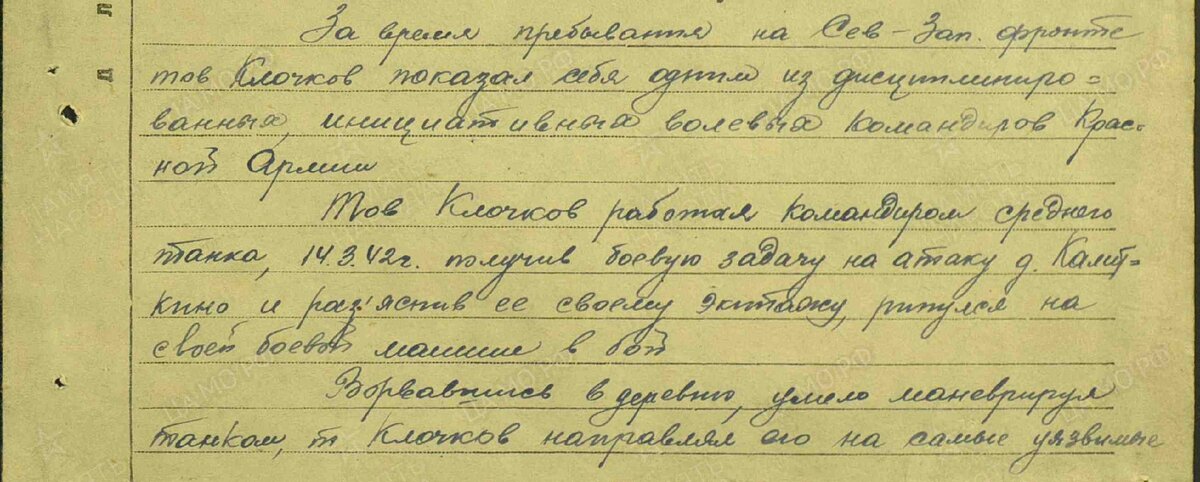 За время пребывания на Сев-Зап. фронте
тов Клочков показал себя одним из дисциплиниро=
ванных, инициативных волевых командиров Крас-
ной Армии
Тов Клочков работая командиром среднего
танка, 14.3.42г. получив боевую задачу на атаку д. Калит-
кино и раз'яснив ее своему экипажу, ринулся на
своей боевой машине в бой
Ворвавшись в деревню, умело маневрируя
танком, т Клочков направлял его на самые уязвимые